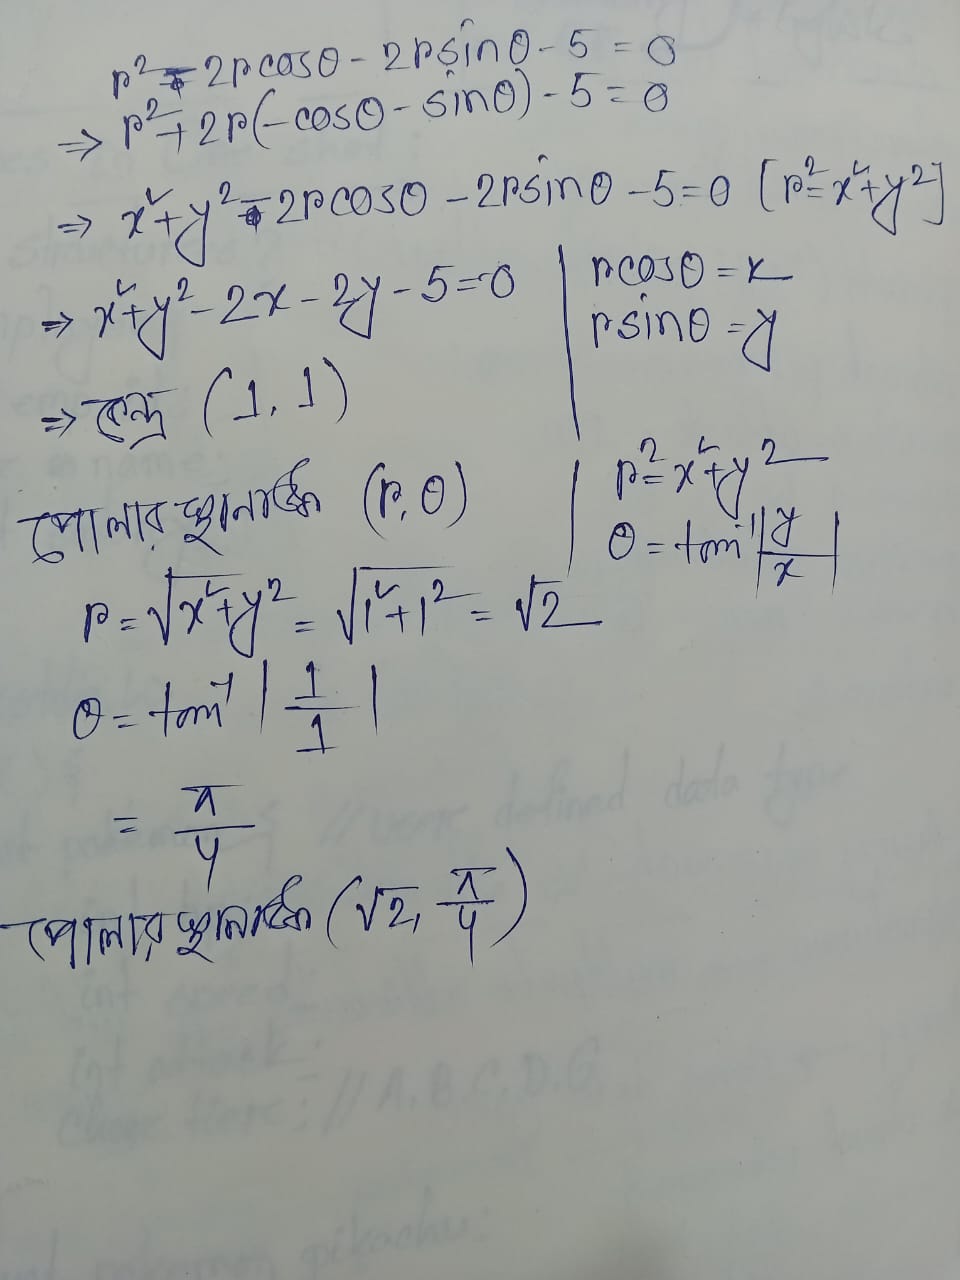 r² - 2rcosθ - 2rsinθ - 5 = 0
⇒ r² + 2r(-cosθ - sinθ) - 5 = 0
⇒ x² + y² - 2rcosθ - 2rsinθ - 5 = 0 [r² = x² + y²]
⇒ x² + y² - 2x - 2y - 5 = 0
rcosθ = x
rsinθ = y
⇒ কেন্দ্র (1, 1)
পোলার স্থানাঙ্ক (r, θ)
r² = x² + y²
θ = tan⁻¹|y/x|
r = √(x² + y²) = √(1² + 1²) = √2
θ = tan⁻¹|1/1|
= π/4
পোলার স্থানাঙ্ক (√2, π/4)